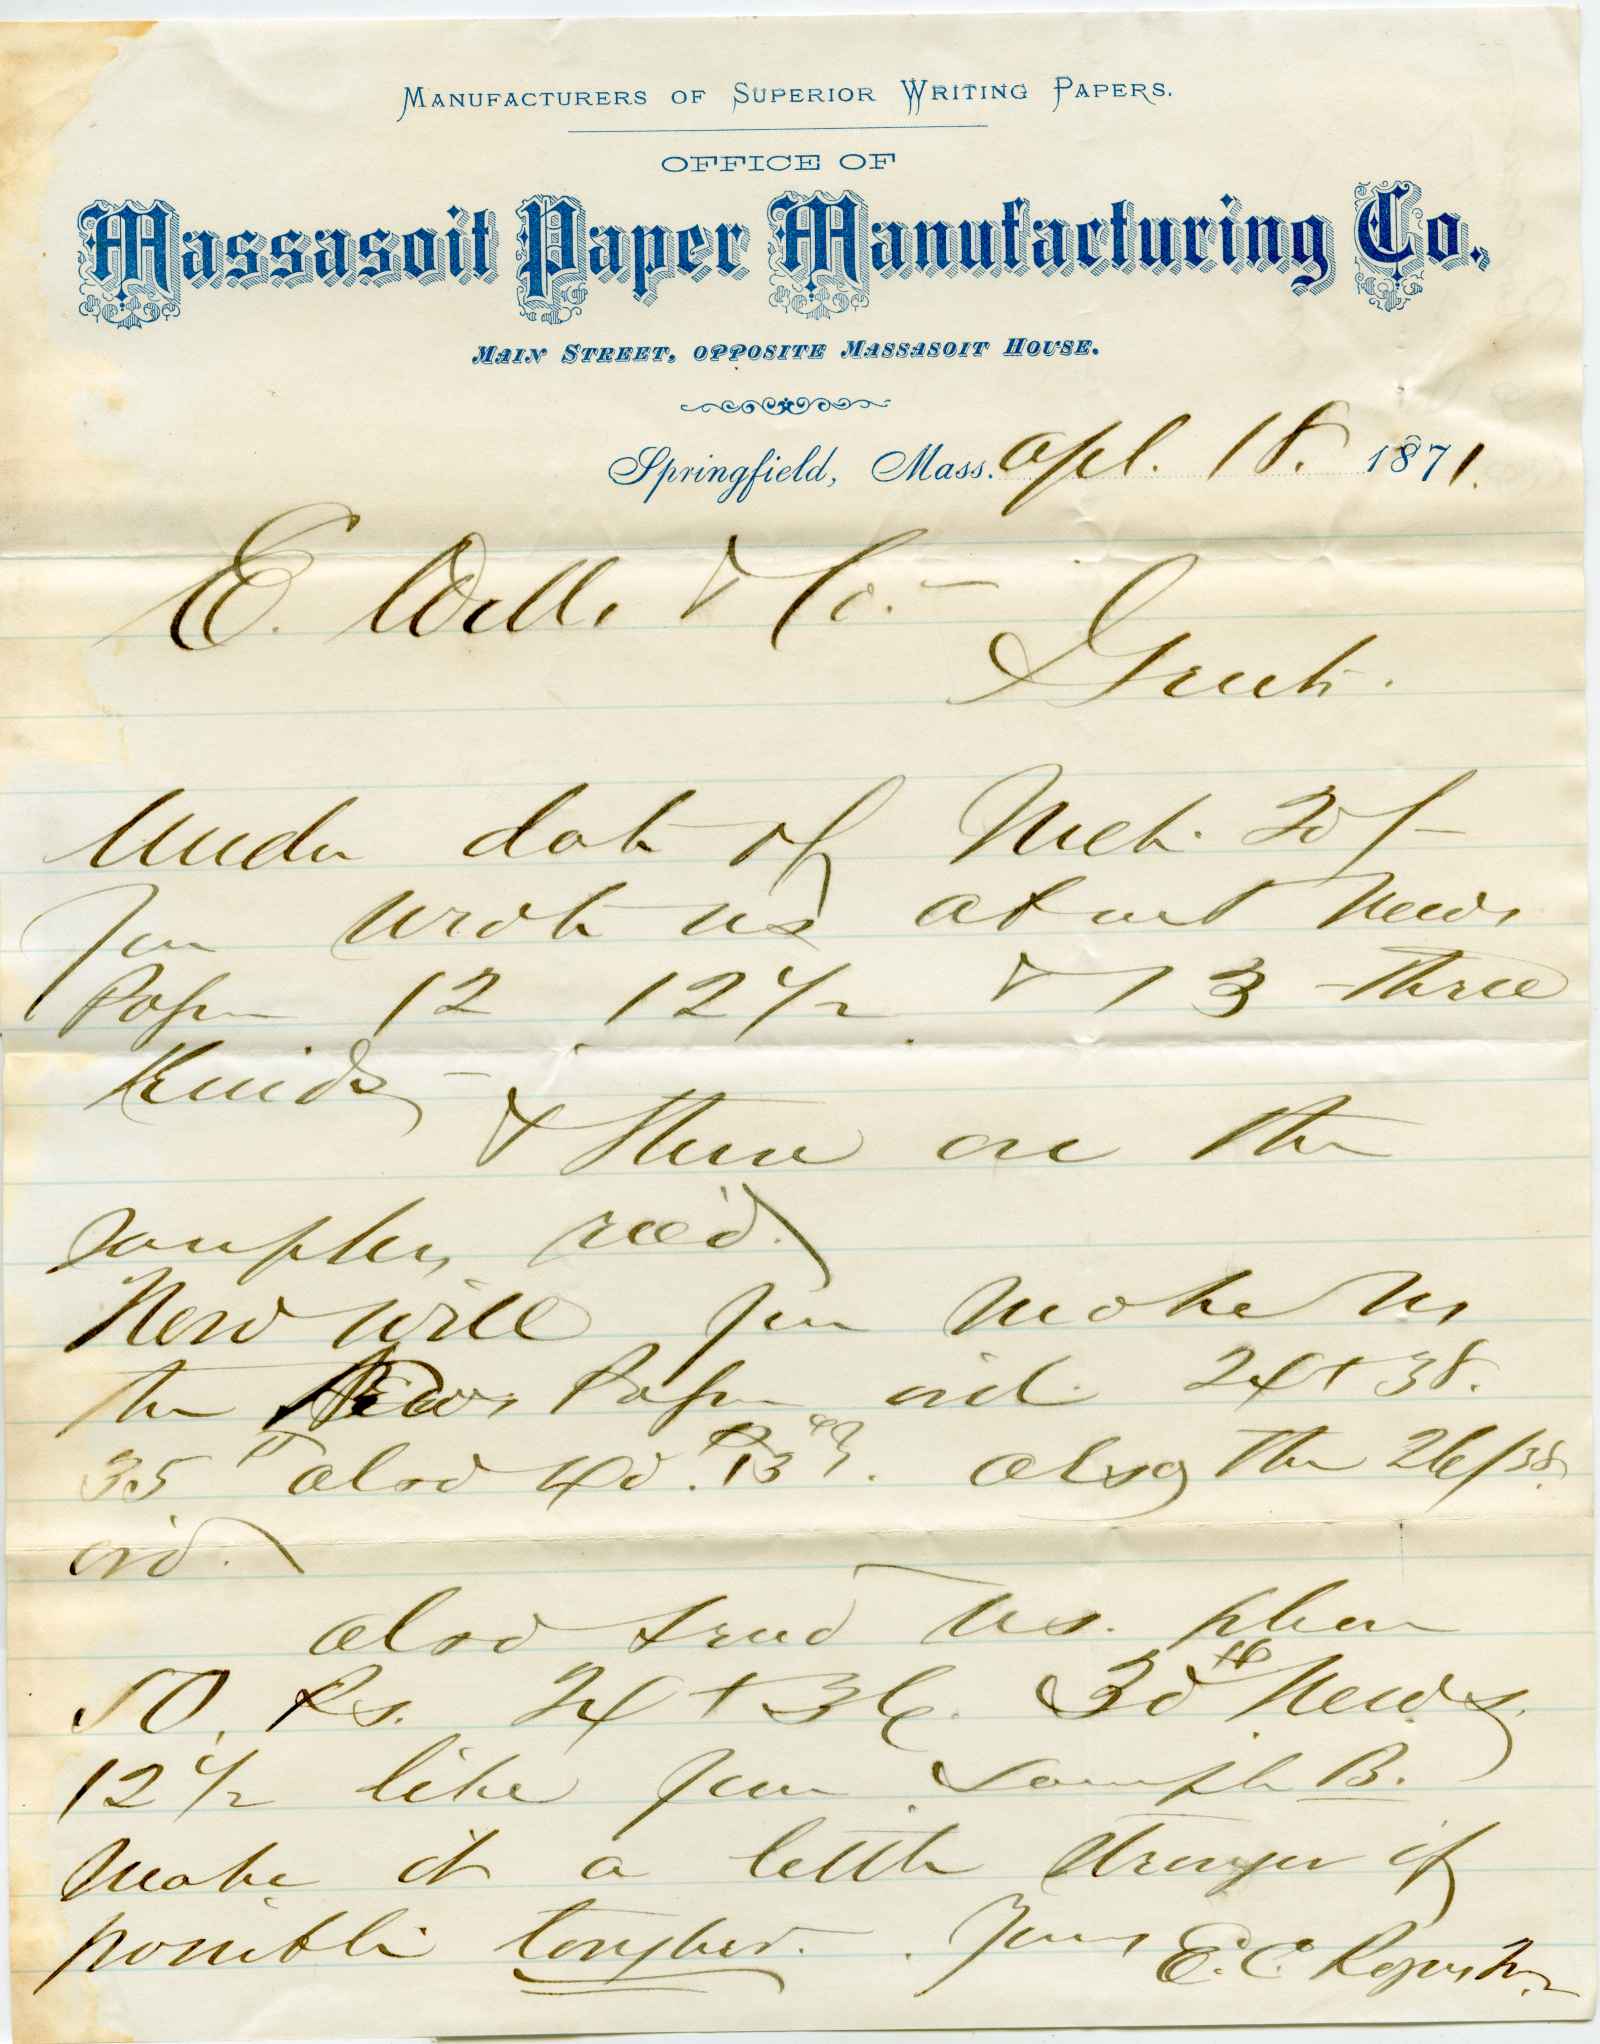 MANUFACTURERS OF SUPERIOR WRITING PAPERS.
OFFICE OF
Massasoit Paper Manufacturing Co.
MAIN STREET, OPPOSITE MASSASOIT HOUSE.
Springfield, Mass. Apl. 18. 1871.
E. Wells & Co. –
Gents.
Under date of Mch. 20/–
you wrote us about News
Paper 12 12½ & 13 – three
Kinds –
& these are the
samples, rec'd.
Now will you make us
the News Paper ord. 24 + 38.
35 also 40. also the 26/38.
ord.
also send us. please
50. Rs. 24 + 36. 30 News.
12½ like your Sample B.
Make it a little stronger if
possible tougher. Yours E. C. Rogers